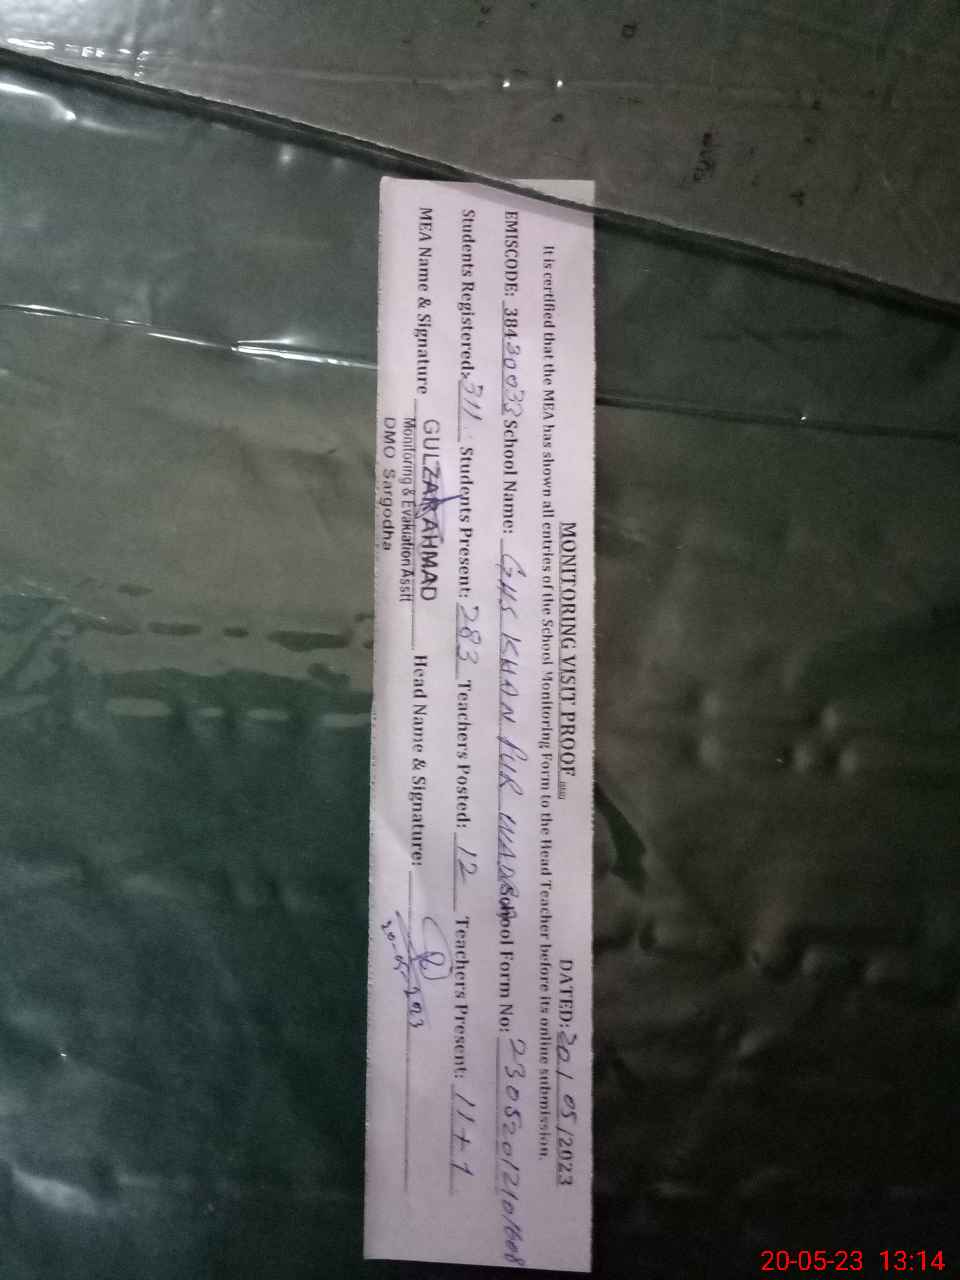 MONITORING VISIT PROOF DATED: 20/05/2023
It is certified that the MEA has shown all entries of the School Monitoring Form to the Head Teacher before its online submission.
EMISCODE: 38430033 School Name: GHS KHAN PUR School Form No: 23052012101608
Students Registered: 311 Students Present: 283 Teachers Posted: 12 Teachers Present: 11+1
MEA Name & Signature GULZAR AHMAD Head Name & Signature:
Monitoring & Evaluation Asstt
DMO Sargodha
20-05-2023
20-05-23 13:14